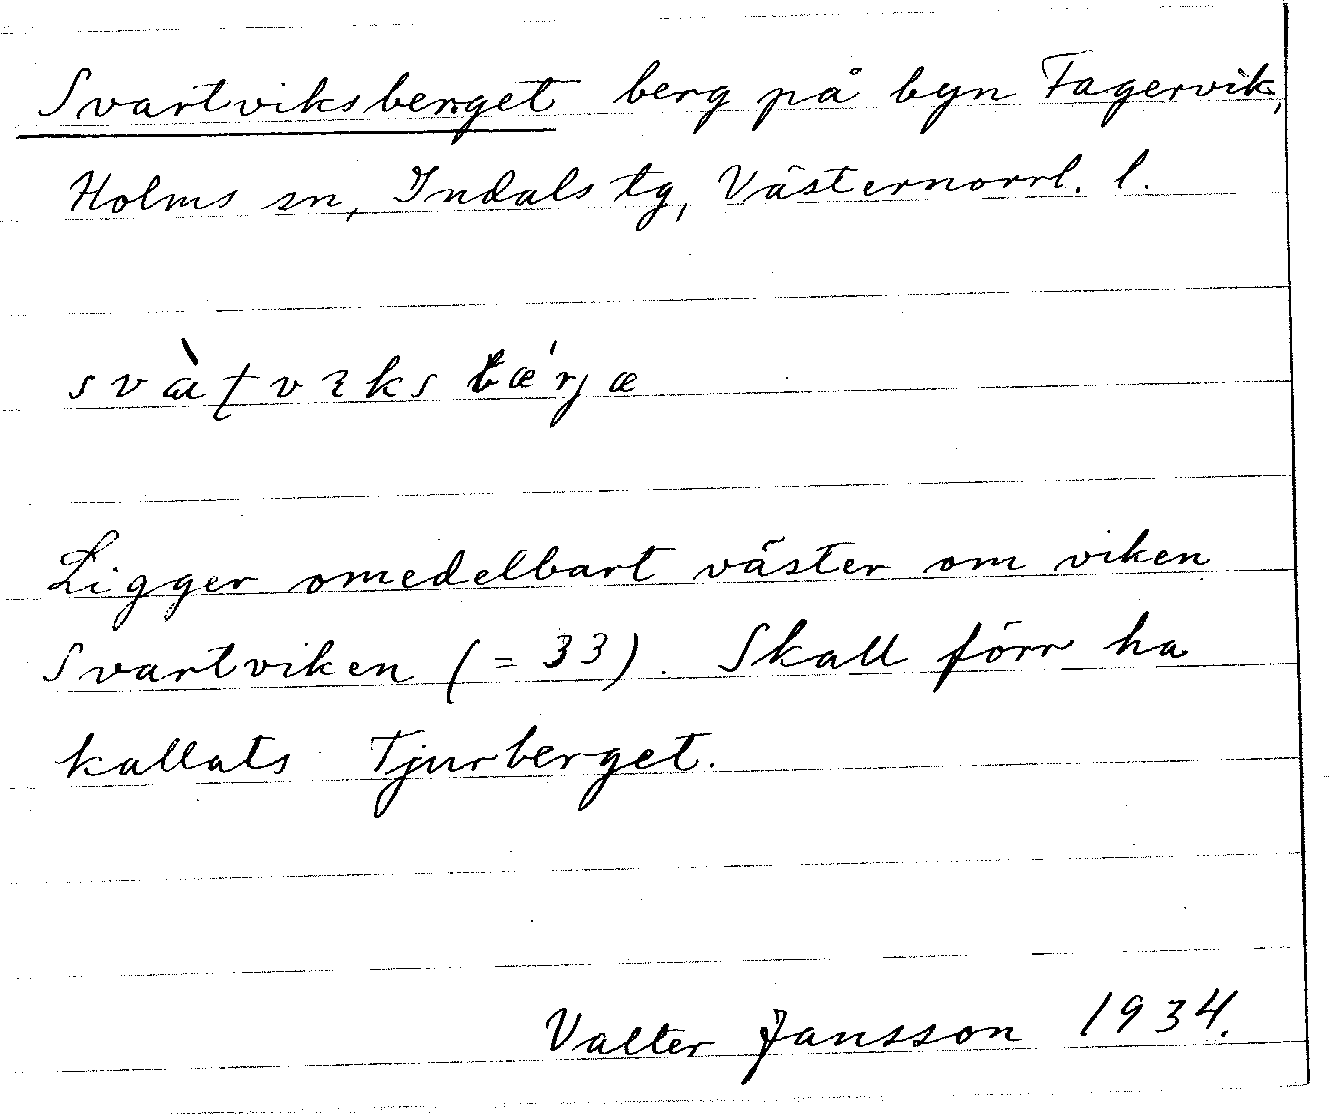 Svartviksberget berg på byn Fagervik,
Holms sn, Indals tg, Västernorrl. l.
svàʈvıksbæ'rjæ
Ligger omedelbart väster om viken
Svartviken (= 33). Skall förr ha
kallats Tjurberget.
Valter Jansson 1934.